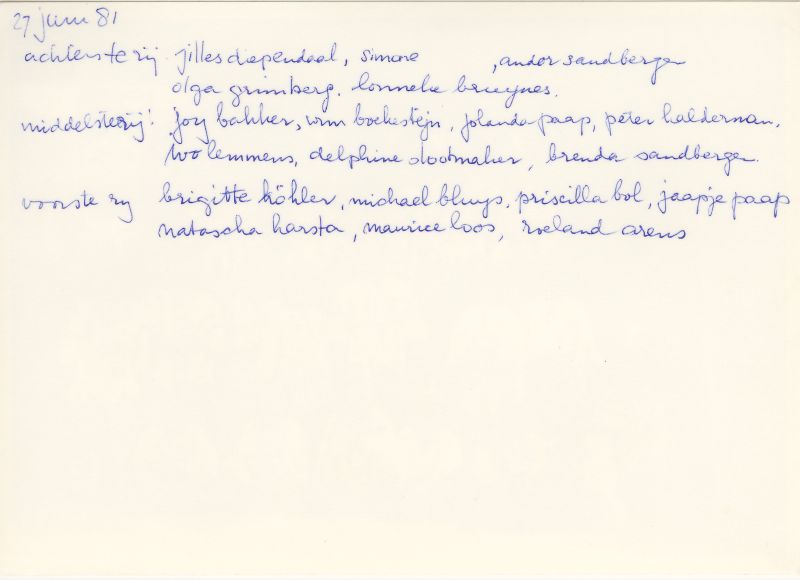 27 juni 81
achterste rij jilles diependaal, simone , andor sandbergen
olga grimberg. lonneke bruynes.
middelste rij: joy bakker, wim bockesteijn, jolanda paap, peter halderman.
ivo lemmens, delphine slootmaker, brenda sandbergen.
voorste rij brigitte köhler, michael bluys, priscilla bol, jaapje paap
natascha harsta, maurice loos, roeland arens